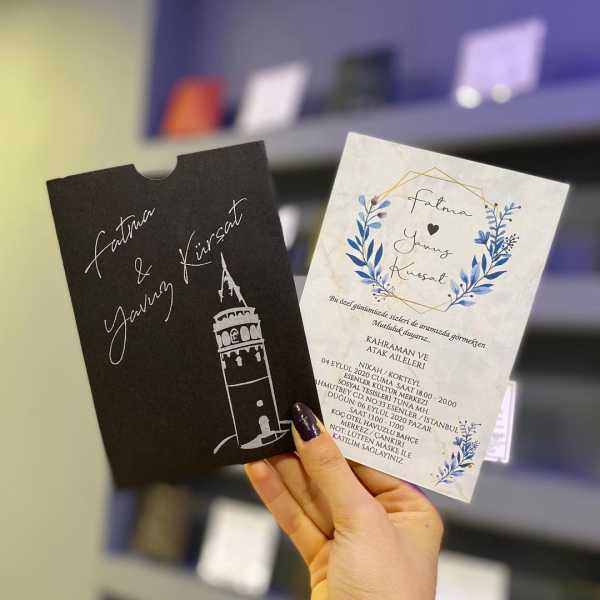 Fatma
&
Yavuz Kürşat
Fatma
Yavuz
Kürşat
Bu özel günümüzde sizleri de aramızda görmekten
Mutluluk duyarız..
KAHRAMAN VE
ATAK AİLELERİ
NİKAH / KOKTEYL
04 EYLÜL 2020 CUMA SAAT 18:00 - 20:00
ESENLER KÜLTÜR MERKEZİ
SOSYAL TESİSLERİ TUNA MH.
HMUTBEY CD. NO:33 ESENLER / İSTANBUL
DÜĞÜN: 06 EYLÜL 2020 PAZAR
SAAT :11:00 - 17:00
KOÇ OTEL HAVUZLU BAHÇE
MERKEZ / ÇANKIRI
NOT: LÜTFEN MASKE İLE
KATILIM SAĞLAYINIZ